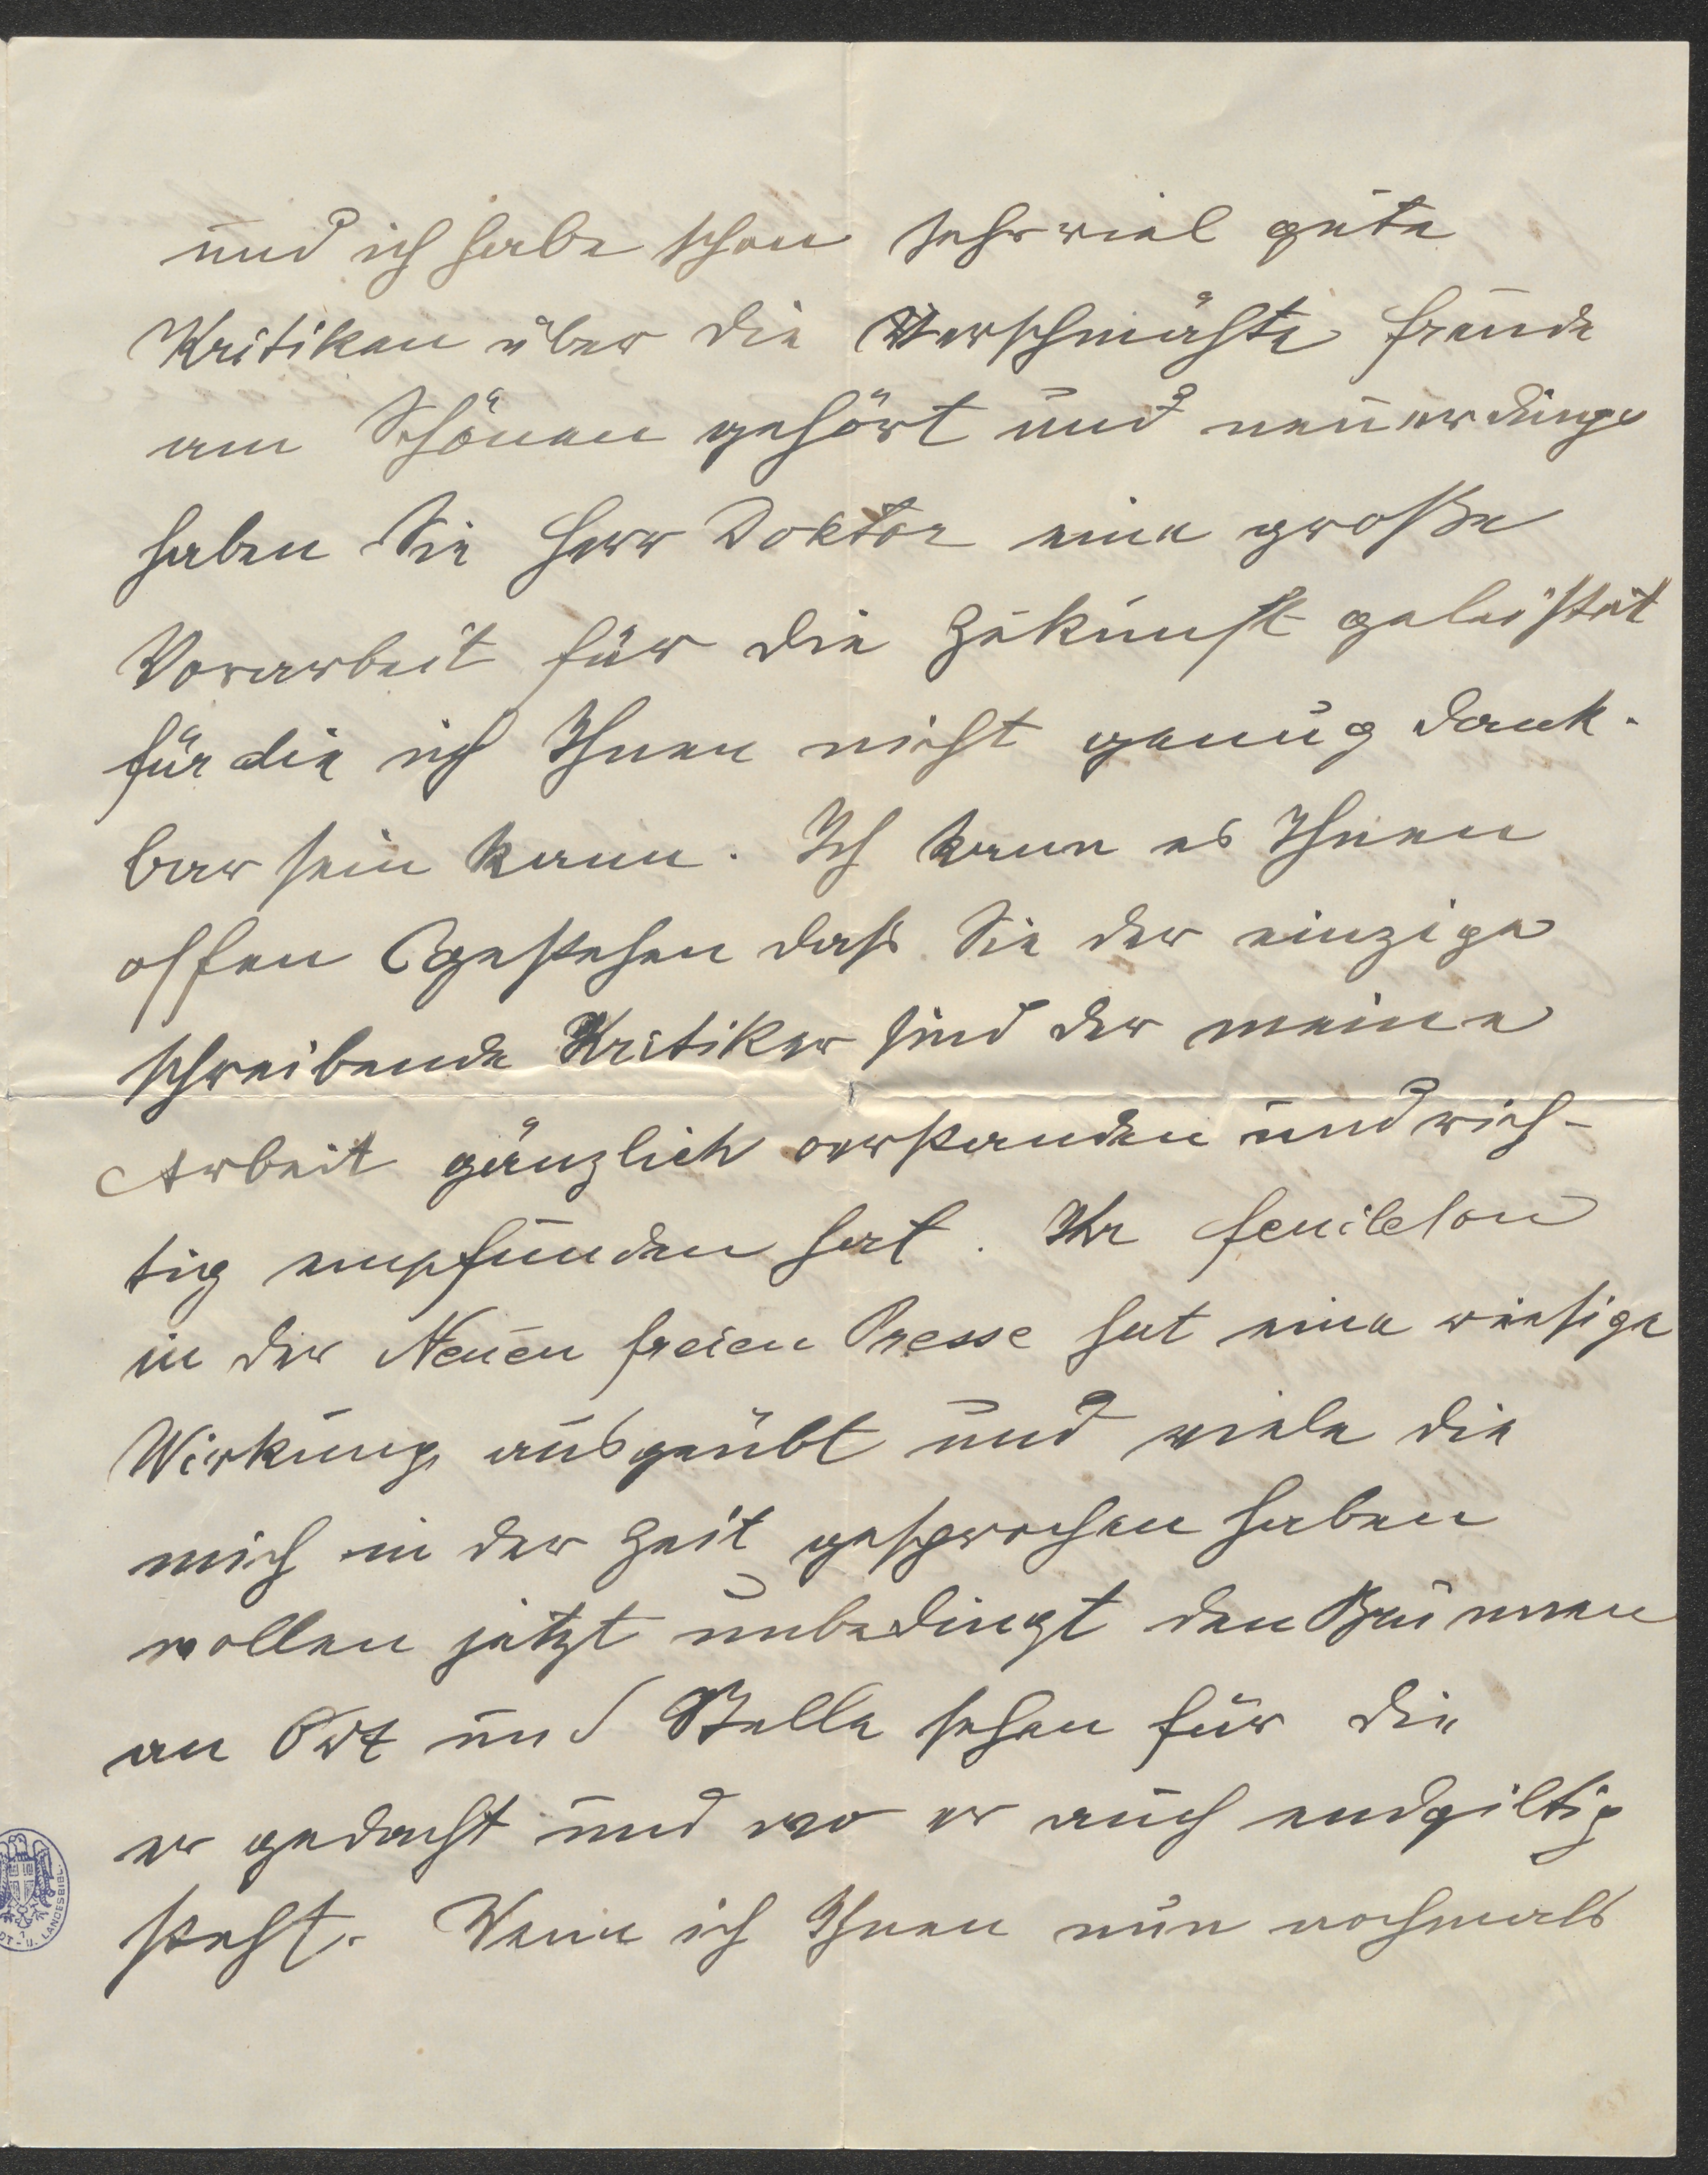 und ich habe schon sehr viel gute
Kritiken über die Verschmähte freude
am Schönen gehört und neuerdings
haben Sie Herr Doktor eine große
Vorarbeit für die Zukunft geleistet
für die ich Ihnen nicht genug dank-
bar sein kann. Ich kann es Ihnen
offen gestehen dass Sie der einzige
schreibende Kritiker sind der meine
Arbeit gänzlich verstanden und rich-
tig empfunden hat. Ihr feuilleton
in der Neuen freien Presse hat eine riesige
Wirkung ausgeübt und viele die
mich in der Zeit gesprochen haben
wollen jetzt unbedingt den Brunnen
an Ort und Stelle sehen für die
er gedacht und wo er auch endgiltig
steht. Wenn ich Ihnen nun nochmals
DT-U. LANDESBIBL.